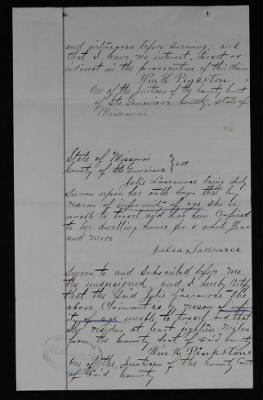 and witnesses before swearing; and
that I have no interest, direct or
indirect in the prosecution of this claim
Wm H Pinkston
One of the Justices of the County Court
of Ste Genevieve County, State of
Missouri
State of Missouri
County of Ste Genevieve } ss
Julia being duly
Sworn upon her oath says that by
reason of infirmity of age she is
unable to travel and has been confined
to her dwelling house for a whole year
and more
Julia
Sworn to and Subscribed before me
the undersigned and I hereby Certify
that the Said Julia the
above Claimant is by reason of infirmi
ty of age unable to travel and that
She resides at least eighteen Miles
from the County Seat of Said County
Wm H Pinkston
One of the Justices of the County Court
of Said County